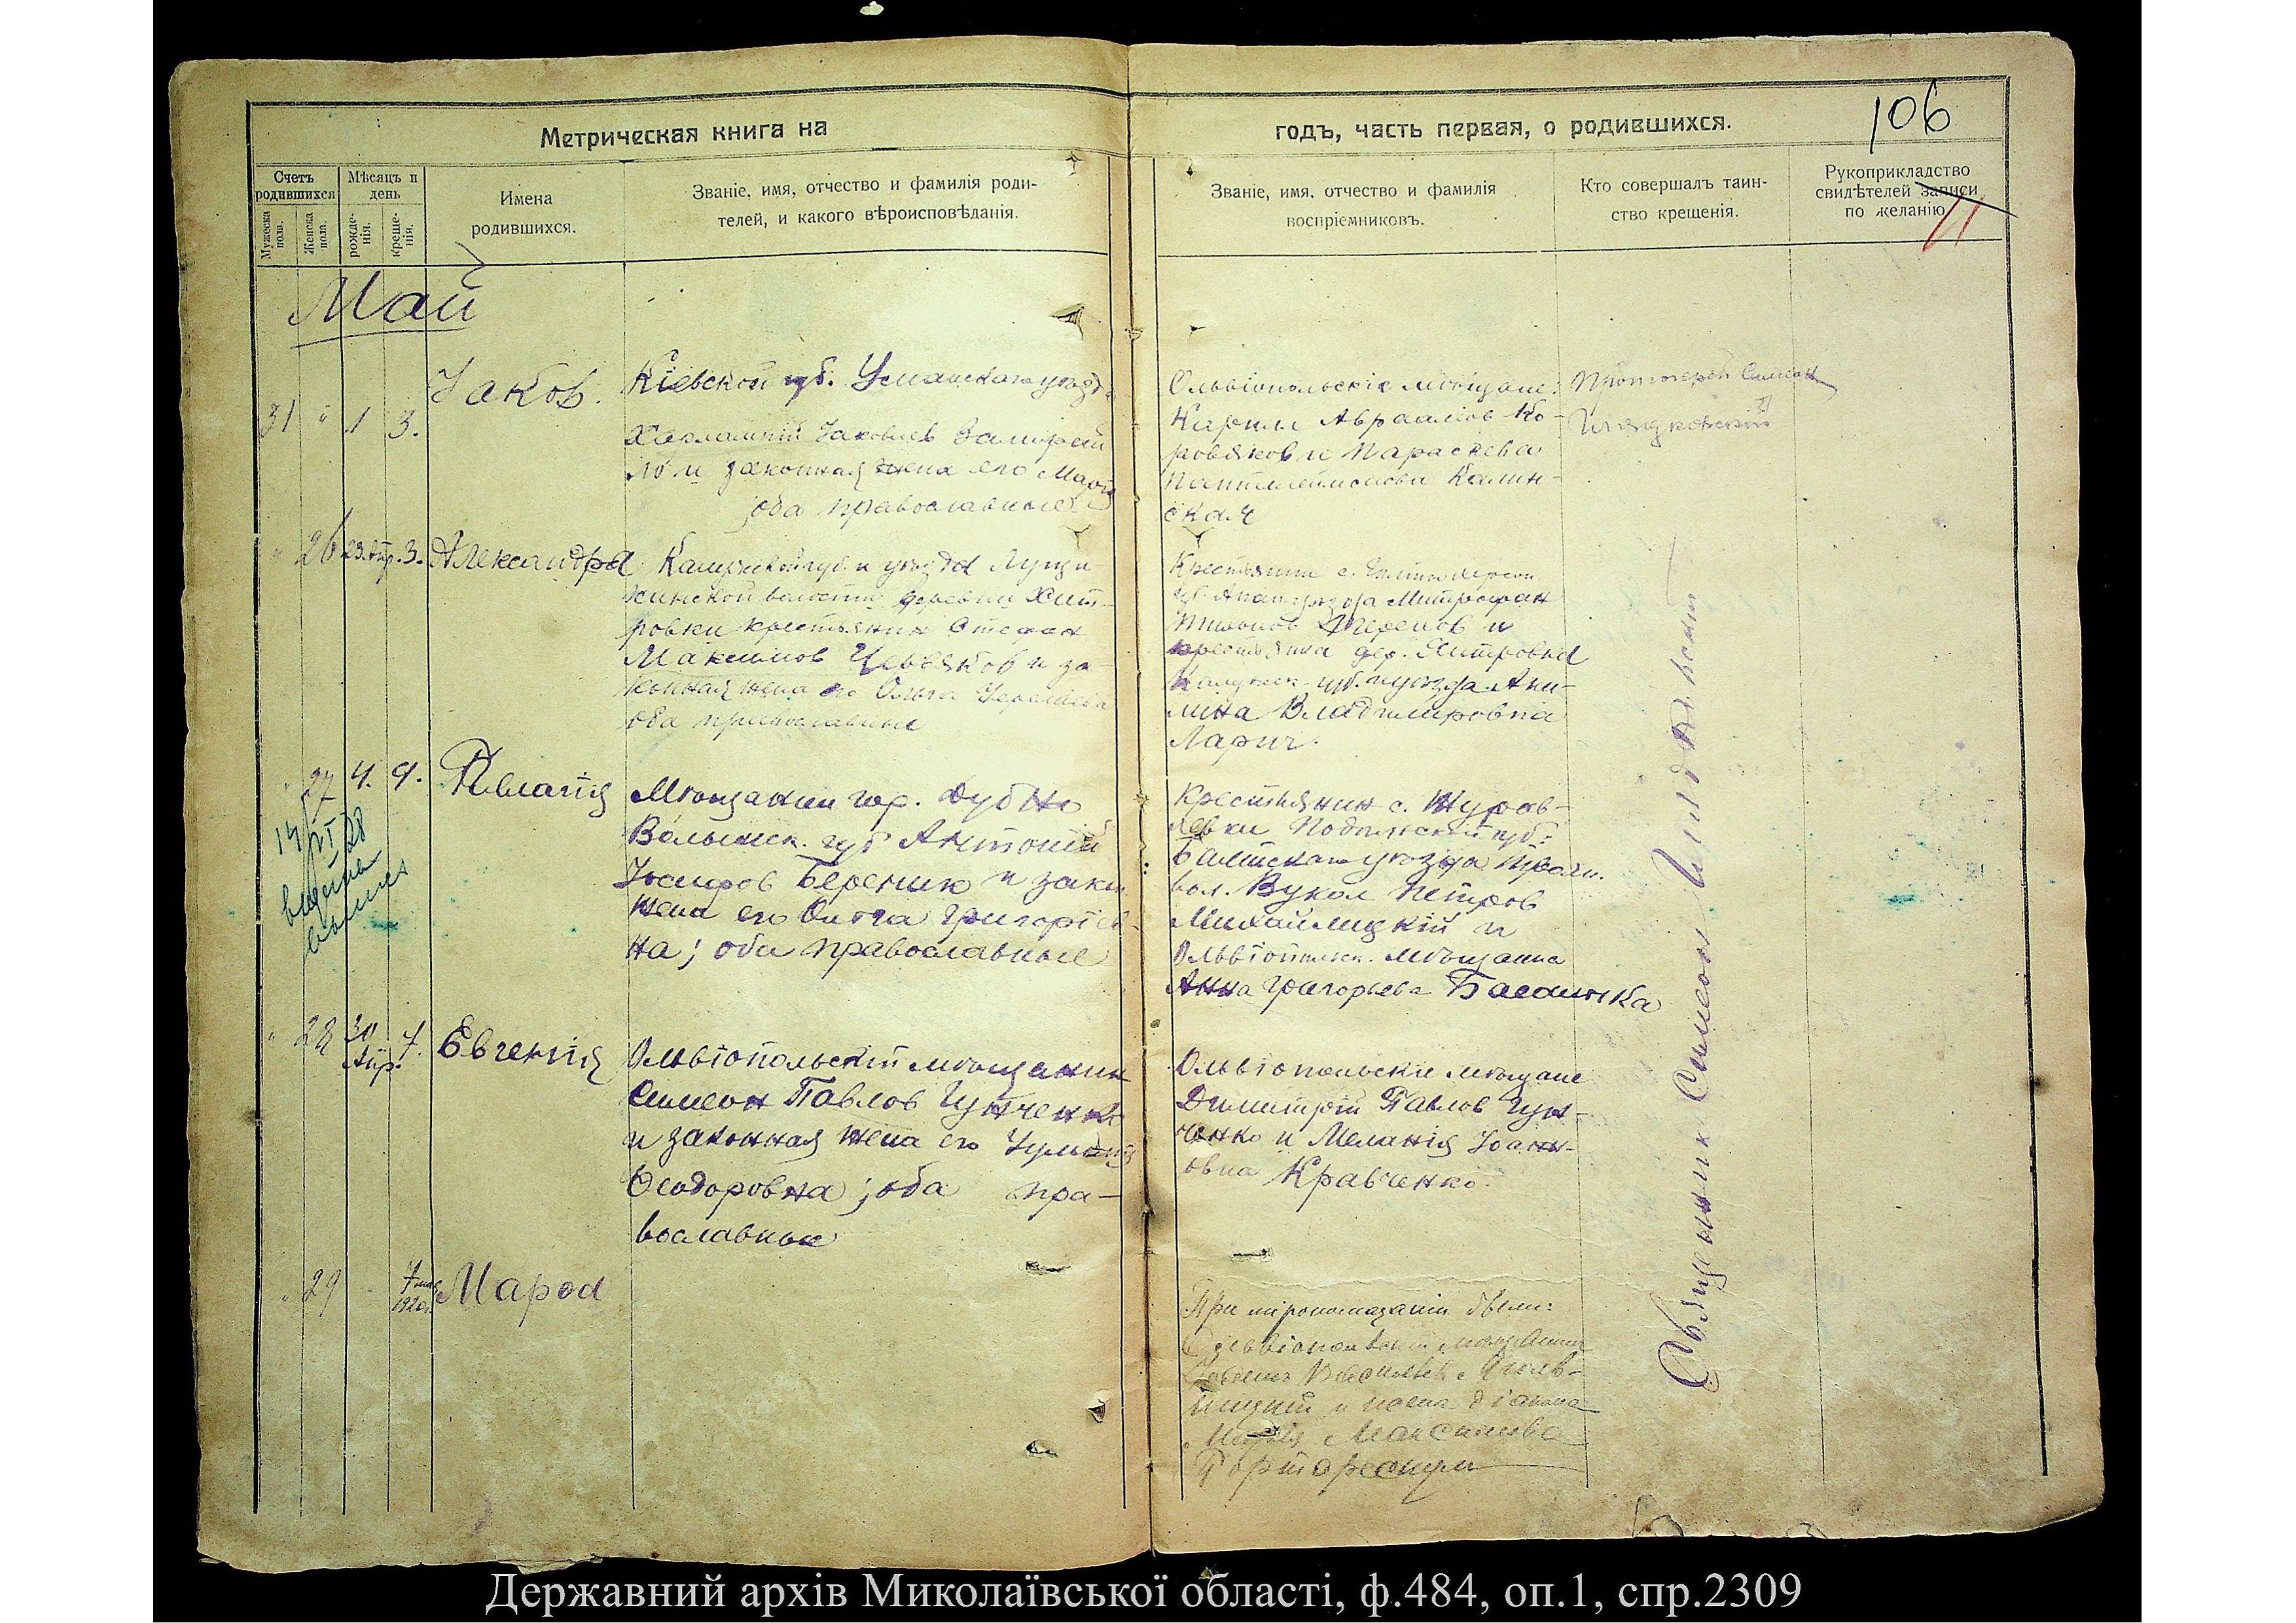 106
Метрическая книга на годъ, часть первая, о родившихся.
Счетъ родившихся
Мужеска пола.
Женска пола.
Мѣсяцъ и день
рожде-
нія.
креще-
нія.
Имена
родившихся.
Званіе, имя, отчество и фамилія роди-
телей, и какого вѣроисповѣданія.
Званіе, имя, отчество и фамилія
воспріемниковъ.
Кто совершалъ таин-
ство крещенія.
Рукоприкладство
свидѣтелей записи
по желанію
Май
31 " 1 3.
Іаков.
Кіевской губ. Уманскаго уезда
Харлампій Іаковлев
и законная жена его Мария
оба православные
Ольвіопольскіе мѣщане:
Карпъ Авраамов Ко-
ровяков и Параскева
Пантелеимонова Калин-
ская
Протоіерей Симеон
" 26 23. Апр. 3. Александра
Калужской губ. и уѣзда
волости деревни Хит-
ровки крестьянин Стефан
Максимов Червяков и за-
конная жена его Ольга
оба православные
Крестьянин с.
губ. Анан. уѣзда Митрофан
и
крестьянка дер. Хитровка
Калужск. губ. и уѣзда Аки-
лина Владимировна
Ларич.
" 27 4. 9. Пелагія
14/VI 28
выпись
Мѣщанин гор. Дубно
Волынск. губ. Антоній
Іосифов Береник и закон.
жена его Ольга Григоріев-
на; оба православные
Крестьянин с. Журав-
левки Подольской губ.
Балтскаго уѣзда
вол. Вукол Петров
Михайлицкій и
Ольвіопольск. мѣщанка
Анна Григорьева
" 28 30 Апр. 7. Евгенія
Ольвіопольскій мѣщанин
Симеон Павлов Гунченко
и законная жена его Іуліанія
Ѳеодоровна; оба пра-
вославные
Ольвіопольскіе мѣщане
Димитрій Павлов Гун-
ченко и Меланія Іоанн-
овна Кравченко.
" 29 7 мая 1920г. Мароа
При міропомазаніи были:
Ольвіопольскій мѣщанин
и жена діакона
Марія Максимова
Священник Симеон
Державний архів Миколаївської області, ф.484, оп.1, спр.2309